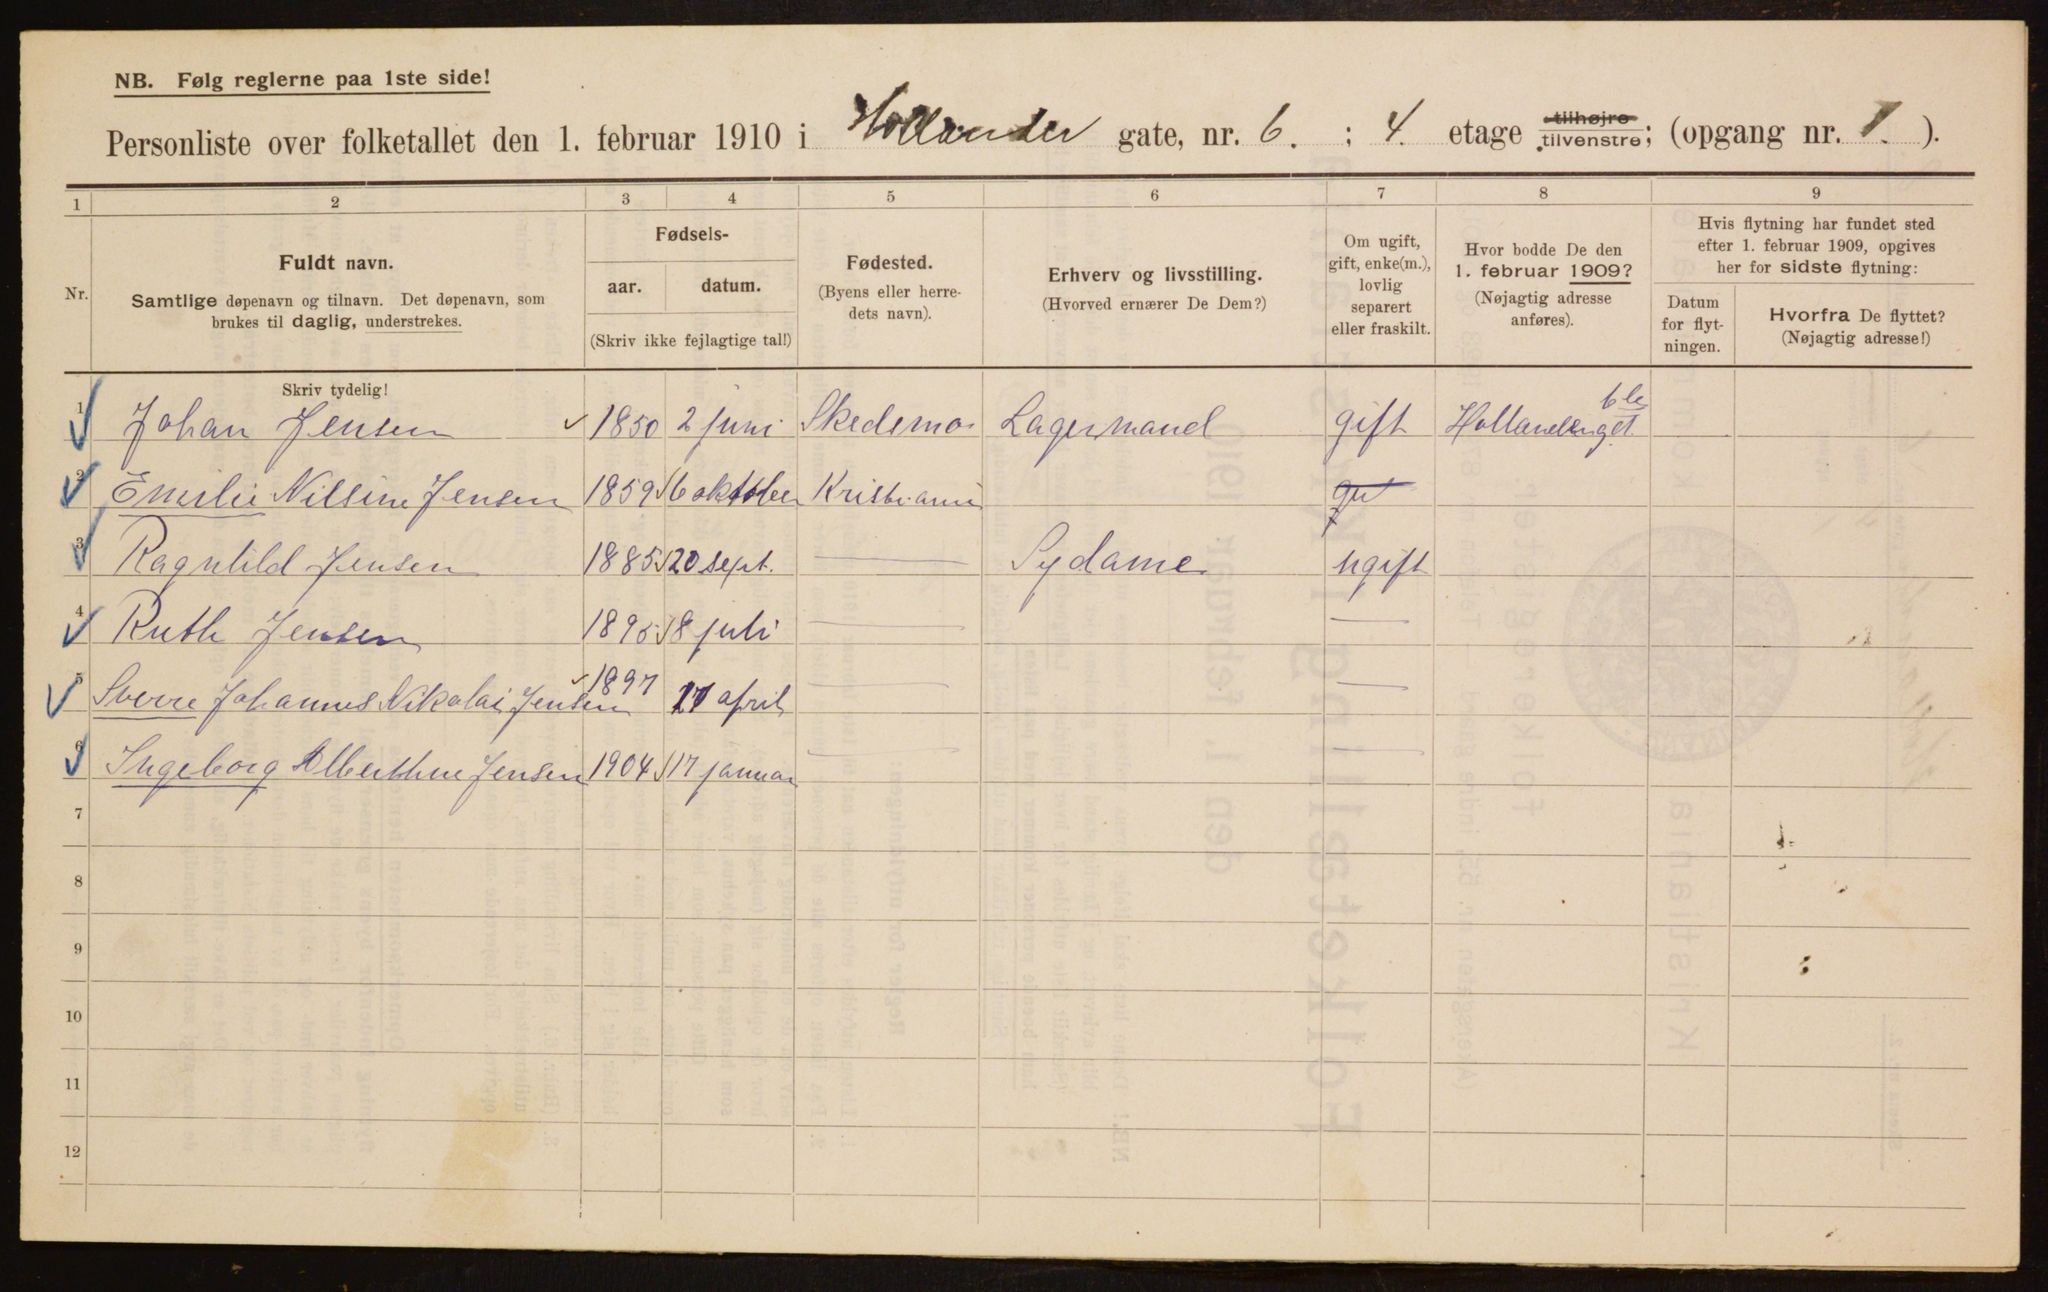 NB. Følg reglerne paa 1ste side!
Personliste over folketallet den 1. februar 1910 i Hollender gate, nr. 6. ; 4. etage tilhøjre tilvenstre; (opgang nr. 1. ).
1 2 3 4 5 6 7 8 9
Nr.
Fuldt navn.
Samtlige døpenavn og tilnavn. Det døpenavn, som
brukes til daglig, understrekes.
Fødsels-
aar. datum.
(Skriv ikke fejlagtige tal!)
Fødested.
(Byens eller herre-
dets navn).
Erhverv og livsstilling.
(Hvorved ernærer De Dem?)
Om ugift,
gift, enke(m.),
lovlig
separert
eller fraskilt.
Hvor bodde De den
1. februar 1909?
(Nøjagtig adresse
anføres).
Hvis flytning har fundet sted
efter 1. februar 1909, opgives
her for sidste flytning:
Datum
for flyt-
ningen.
Hvorfra De flyttet?
(Nøjagtig adresse!)
Skriv tydelig!
1 Johan Jensen 1850 2 juni Skedsmo Lagermand gift Hollendergt. 6
2 Emilie Nilsine Jensen 1859 6 oktober Kristiania
3 Ragnhild Jensen 1885 20 sept. — Sydame ugift
4 Ruth Jensen 1895 8 juli — —
5 Sverre Johannes Nikolai Jensen 1897 17 april — —
6 Ingeborg Alberthine Jensen 1904 17 januar — —
7
8
9
10
11
12